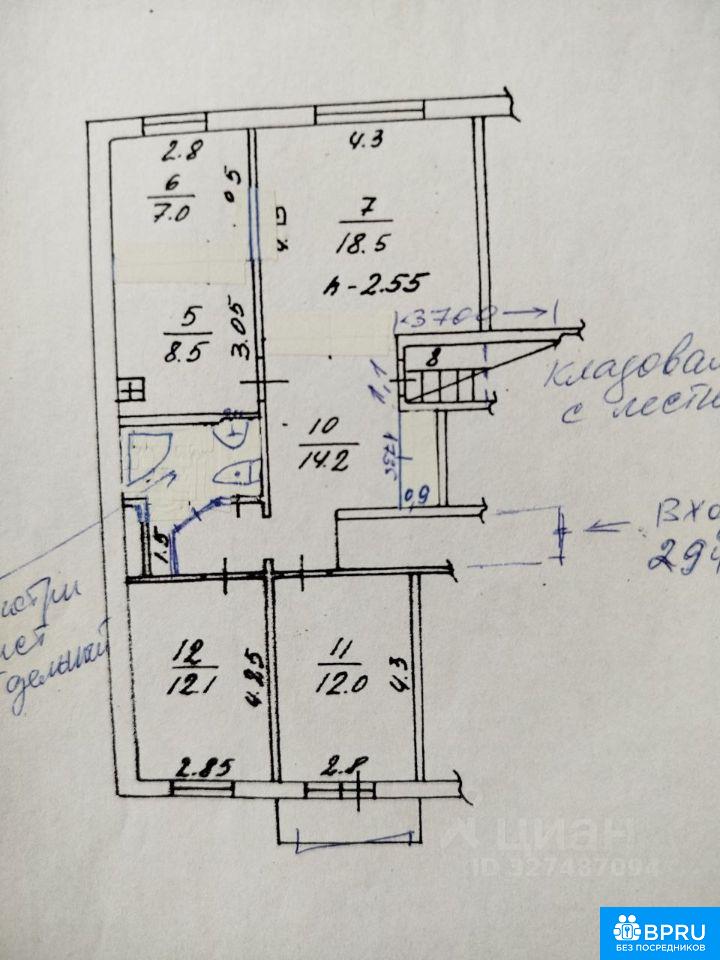 2.8
4.3
6
7.0
0.5
4.15
7
18.5
h-2.55
5
8.5
3.05
3700
8
1,1
10
14.2
1.735
0,9
1.5
12
12.1
4.25
11
12.0
4.3
2.85
2.8
Кладовая
с лестн
Вхо
294
лист
циан
ID 327487094
BPRU
БЕЗ ПОСРЕДНИКОВ